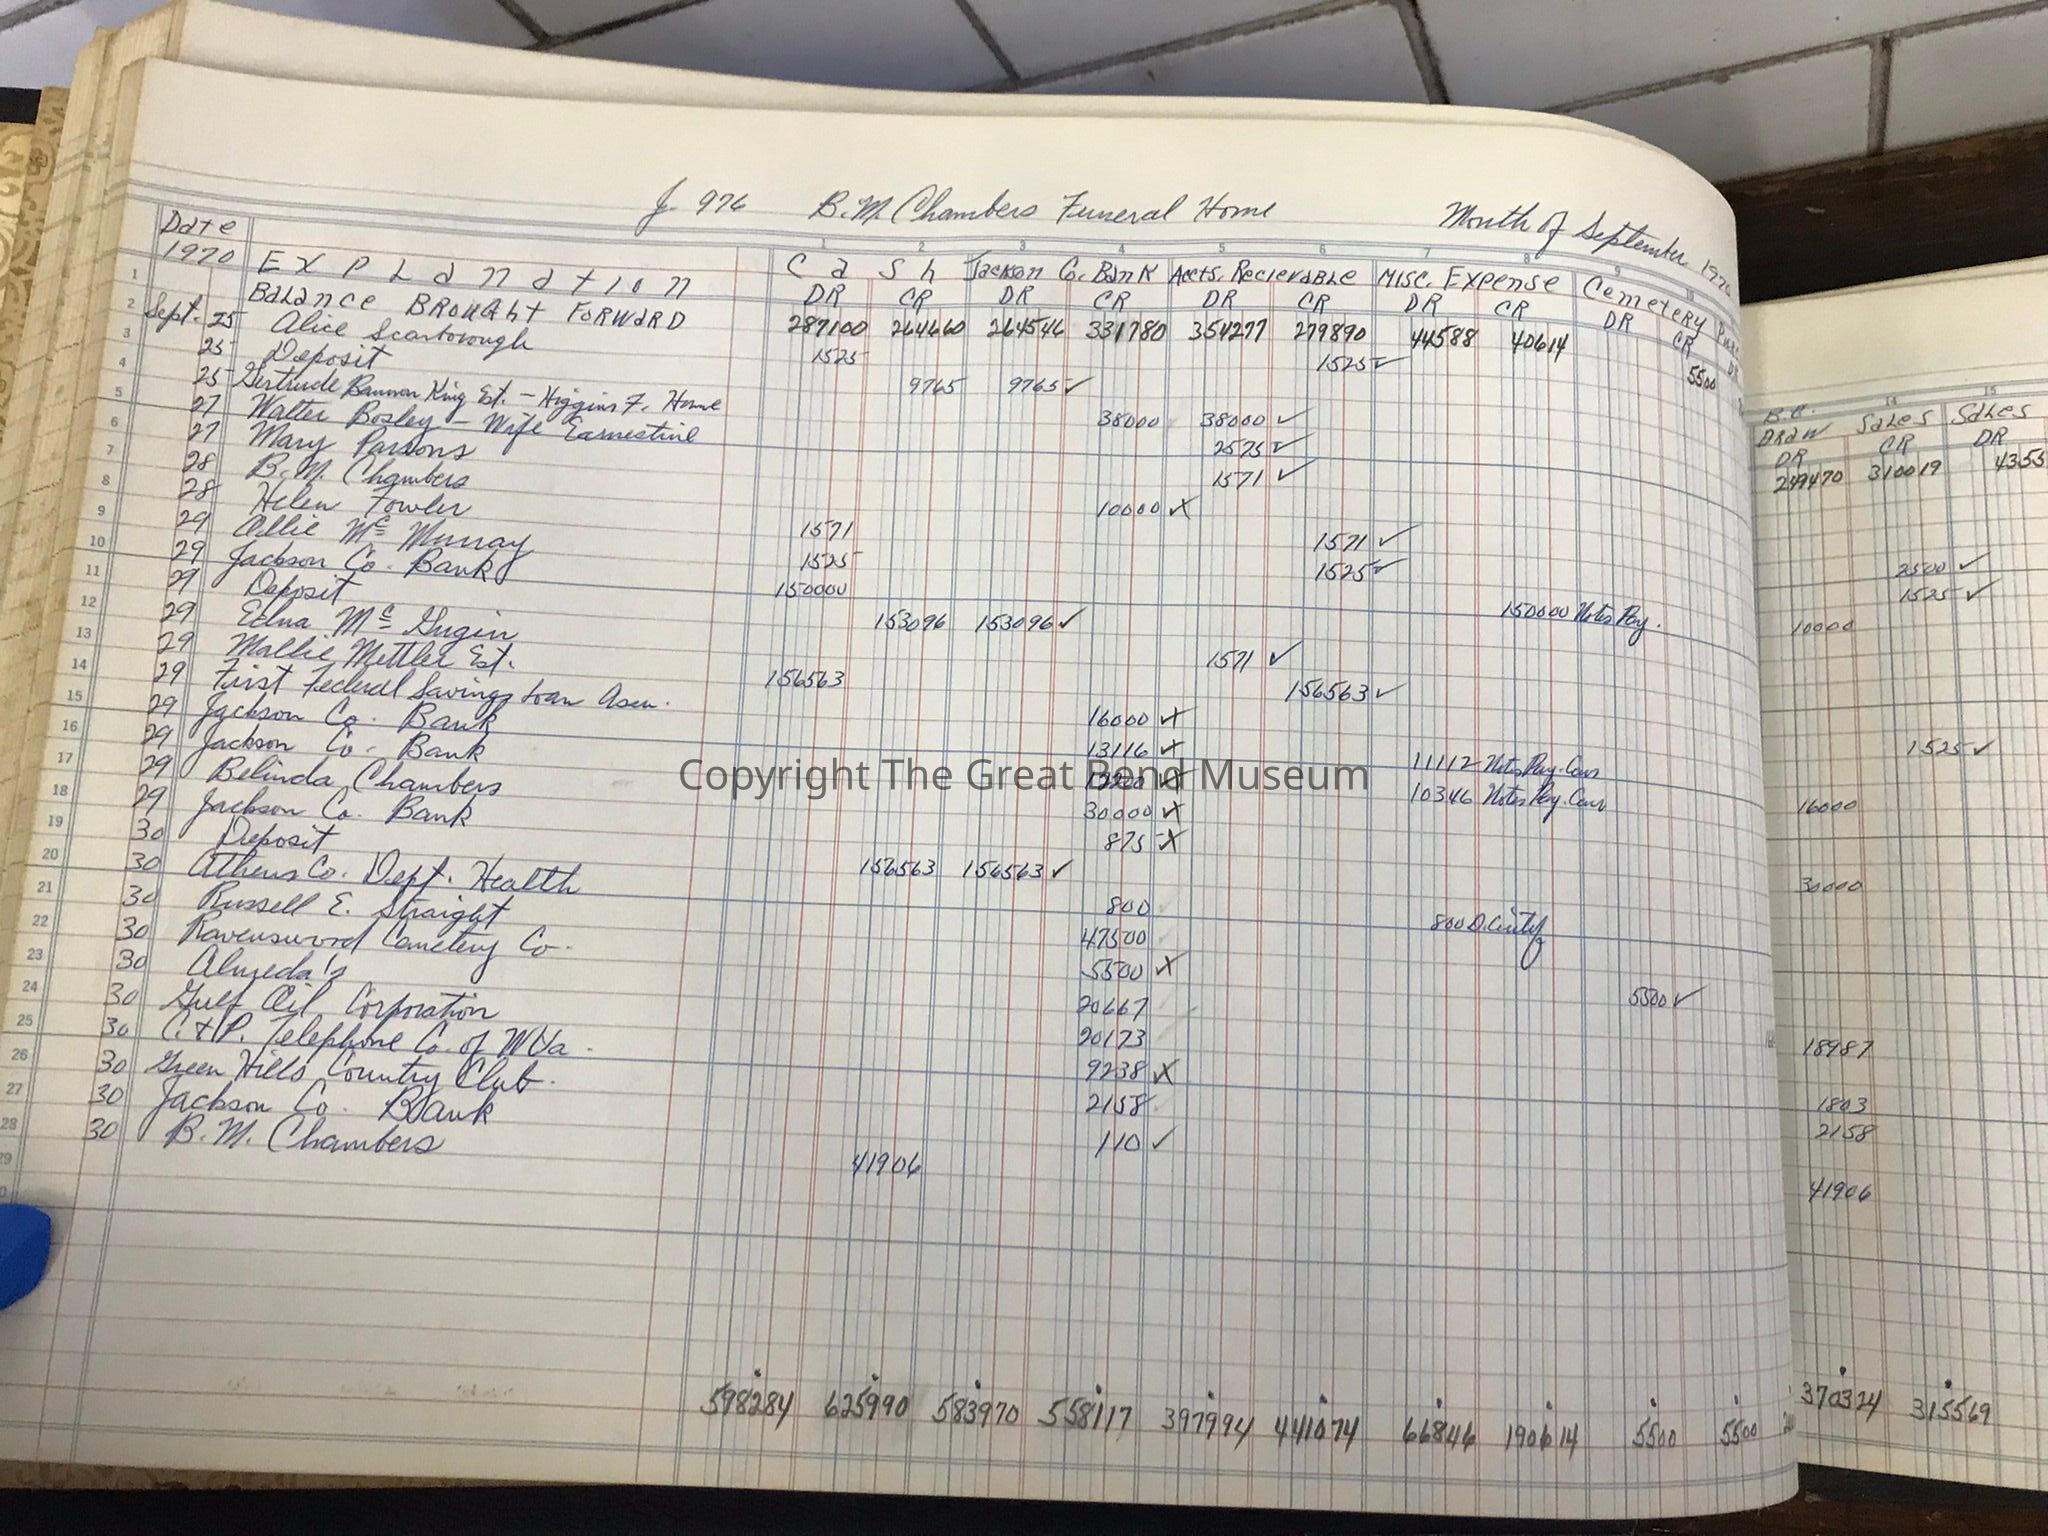 J 976 B.M. Chambers Funeral Home Month of September 1970
Date 1970 Explanation Cash Jackson Co. Bank Accts. Recievable Misc. Expense Cemetery
DR CR DR CR DR CR DR CR DR CR
Balance Brought Forward 287100 264660 264546 331780 354277 279890 44588 40614 5500
Sept. 25 Alice Scarborough 1525 1525 ✓
25 Deposit 9765 9765 ✓
25 Gertrude Bannon King Est. - Higgins F. Home 38000 38000 ✓
27 Walter Bosley - Wife Earnestine 2575 ✓
27 Mary Parsons 1571 ✓
28 B.M. Chambers 10000
28 Helen Fowler 1571 1571 ✓
29 Ollie Mc Murray 1525 1525 ✓
29 Jackson Co. Bank 150000 150000 Notes Pay.
29 Deposit 153096 153096 ✓
29 Edna Mc Gugin 1571 ✓
29 Mallie Mettler Est. 156563 156563 ✓
29 First Federal Savings Loan Assn. 16000
29 Jackson Co. Bank 13116 11112 Notes Pay. Cars
29 Jackson Co. Bank 10346 Notes Pay. Cars
29 Belinda Chambers 30000
29 Jackson Co. Bank 875
30 Deposit 156563 156563 ✓
30 Athens Co. Dept. Health 800 800 D. Certif
30 Russell E. Straight 47500
30 Ravenswood Cemetery Co. 5500 5500 ✓
30 Almeda's 20667
30 Gulf Oil Corporation 20173
30 C. & P. Telephone Co. of W Va. 9238
30 Green Hills Country Club. 2158
30 Jackson Co. Bank 110 ✓
30 B.M. Chambers 41906
598284 625990 583970 558117 397994 441074 66846 190614 5500 5500
Draw Sales Sales
DR CR DR
249470 310019 4355
2500 ✓
1525 ✓
10000
1525 ✓
16000
30000
18987
1803
2158
41906
370324 315569
Copyright The Great Bend Museum